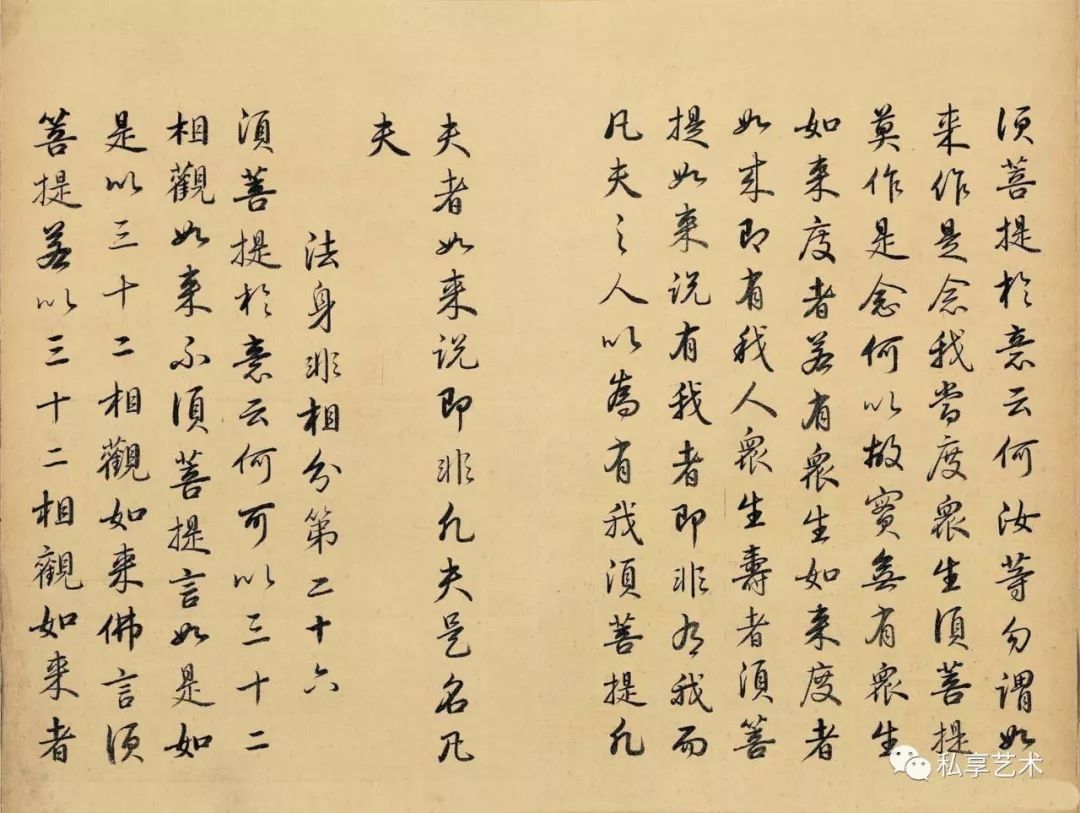 须菩提於意云何汝等勿謂如
来作是念我當度衆生须菩提
莫作是念何以故實無有衆生
如来度者若有衆生如来度者
如来即有我人衆生壽者须菩
提如来说有我者即非有我而
凡夫之人以為有我须菩提凡
夫者如来说即非凡夫是名凡
夫
法身非相分第二十六
须菩提於意云何可以三十二
相觀如来不须菩提言如是如
是以三十二相觀如来佛言须
菩提若以三十二相觀如来者
私享艺术